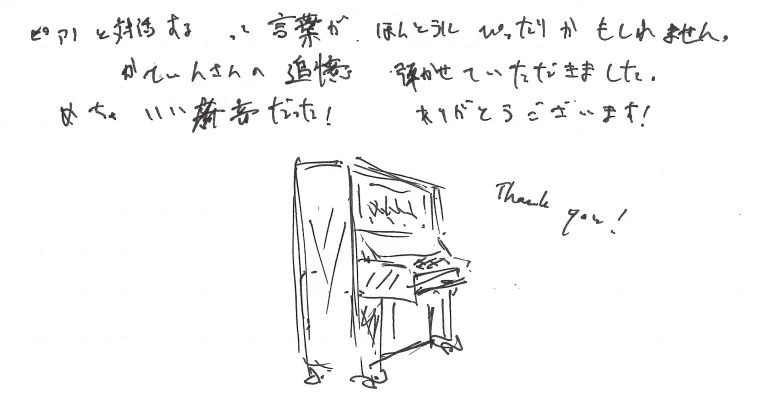 ピアノと対話する って言葉が ほんとうにぴったりかもしれません。
かてぃんさんの追憶 弾かせていただきました。
めちゃいい だった! ありがとうございます!
Thank you!